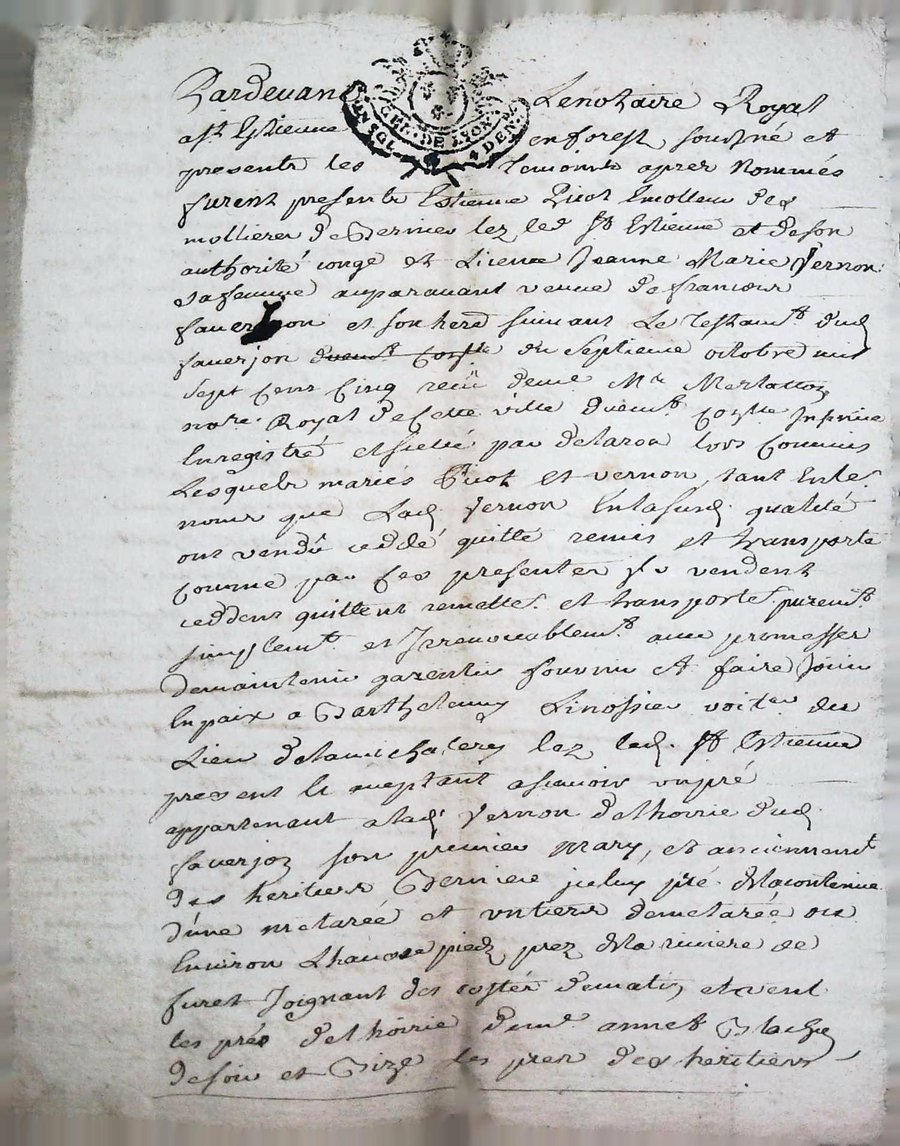 Pardevant Lenotaire Royal
UN SOL GEN. DE LYON 4 DEN.RS
a St Estienne en forest soussigné et
presents les temoins apres nommés
furent presents Estienne Picot Emolleur des
mollieres de lez led St Estienne et deson
authorité congé et Licence Jeanne Marie Vernon
safemme auparavant veuve de francois
faverjon et son herd suivant Le Testamt. dud
faverjon duemt. du septieme octobre mil
sept Cens Cinq reçu deme Me
notre. Royal deCette ville duemt.
Enregistré et par delaroa Lors Commis
Lesquels mariés Picot et vernon, tant Enles.
noms que Lad Vernon Enlasusd. qualité
ont vendû ceddé quitté remis et transporté
comme par Ces presentes ils vendent
ceddent quittent remettet. et transportet. puremt.
simplemt. et Irrevocablemt. avec promesses
demaintenir garentir fournir et faire Jouir
En paix a Barthelemy Linossier voiter du
Lieu delamichalery lez led. St Estienne
present et aceptant ascavoir unpré
appartenant alad. Vernon delhoirie dud.
faverjon son premier mary, et anciennemt
des heritiers Bernier jceluy pré delacontenue
d'une metarée et untiers demetarée ou
Environ prez dela riviere de
furet Joignant des costés dematin et vent
les prés delhoirie demd. annet
desoir et Bize les prez des heritiers